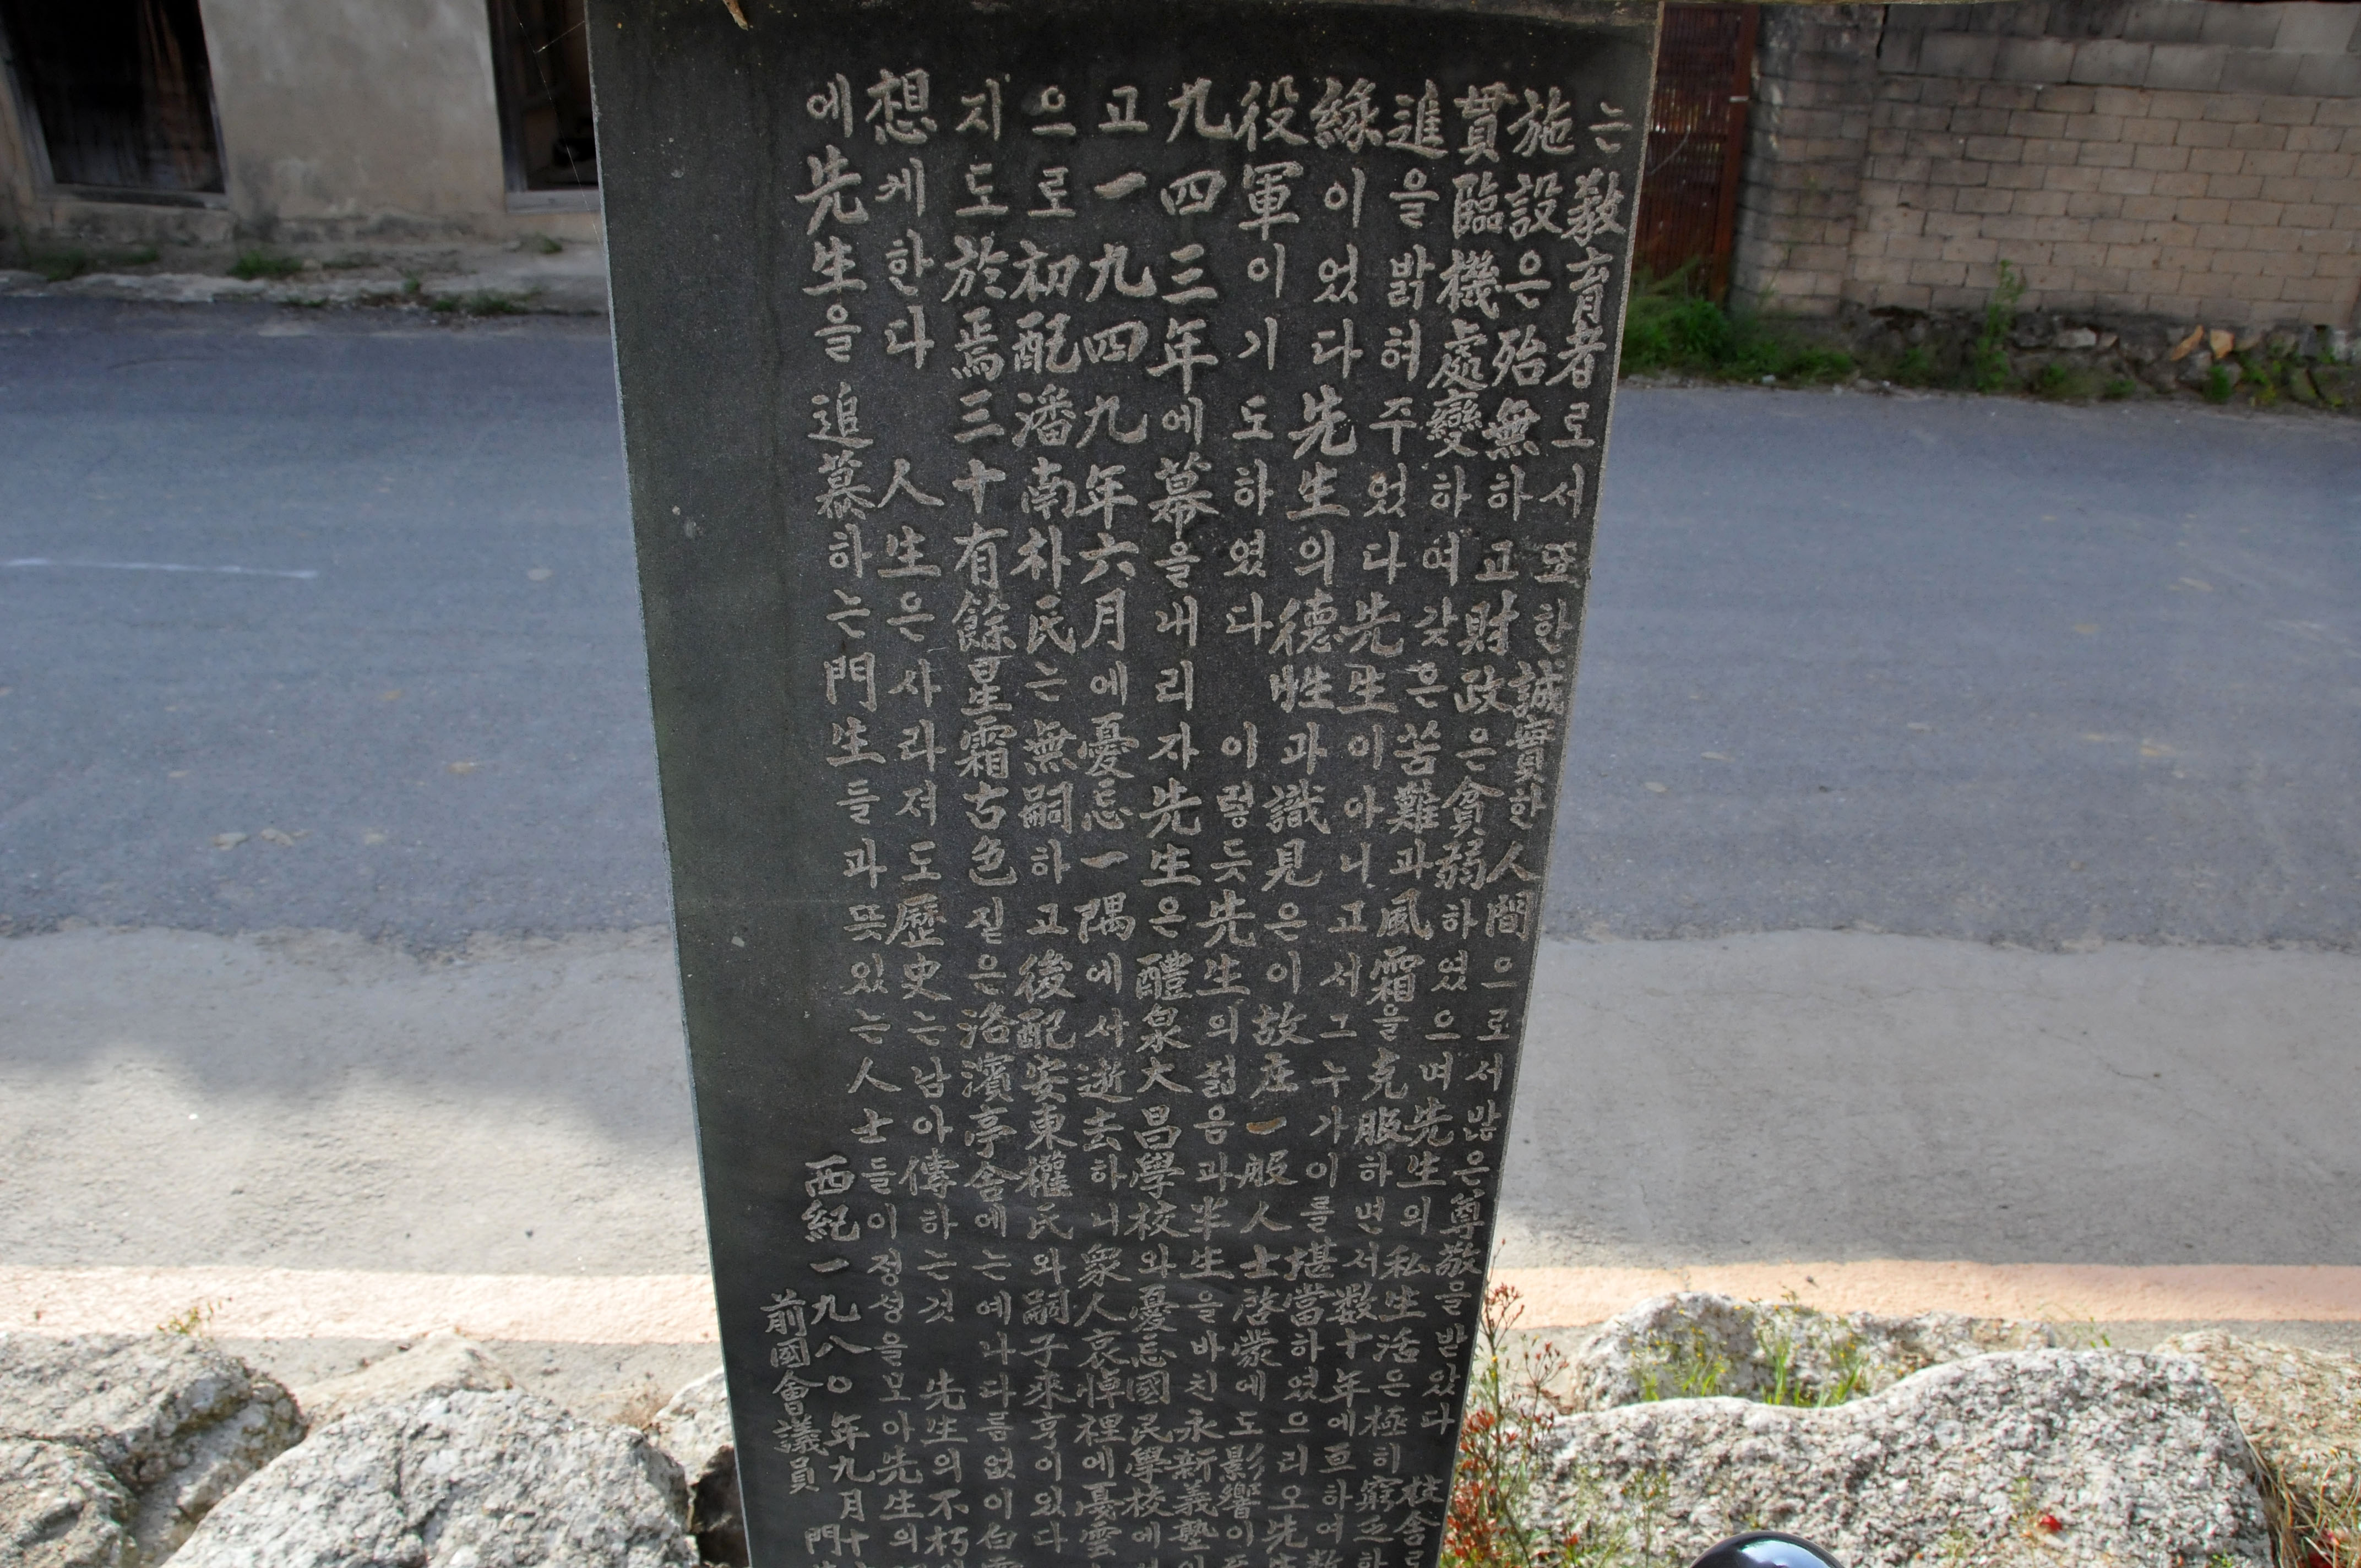 는 敎育者로서 또한 誠實한 人間으로서 많은 尊敬을 받았다 校舍
施設은 殆無하고 財政은 貧弱하였으며 先生의 私生活은 極히 窮乏
貫 臨機處變하여 갖은 苦難과 風霜을 克服하면서 数十年에 亘하여
進을 밝혀 주었다 先生이 아니고서 그 누가 이를 堪當하였으리오 先
緣이었다 先生의 德性과 識見은 이 故庄 一般人士 啓蒙에도 影響이
役軍이기도 하였다 이렇듯 先生의 젊음과 半生을 바친 永新義塾
九四三年에 幕을 내리자 先生은 醴泉大昌學校와 憂忘國民學校에
고 一九四九年六月에 憂忘一隅에서 逝去하니 衆人哀悼裡에 憂雲
으로 初配 潘南朴氏는 無嗣하고 後配 安東權氏와 嗣子 來亨이 있다
지도 於焉 三十有餘星霜 古色 짙은 洛濱亭舍에는 예나 다름없이 白雲
想케 한다 人生은 사라져도 歷史는 남아 傳하는 것 先生의 不朽
에 先生을 追慕하는 門生들과 뜻있는 人士들이 정성을 모아 先生의
西紀 一九八〇年 九月 十
前國會議員 門